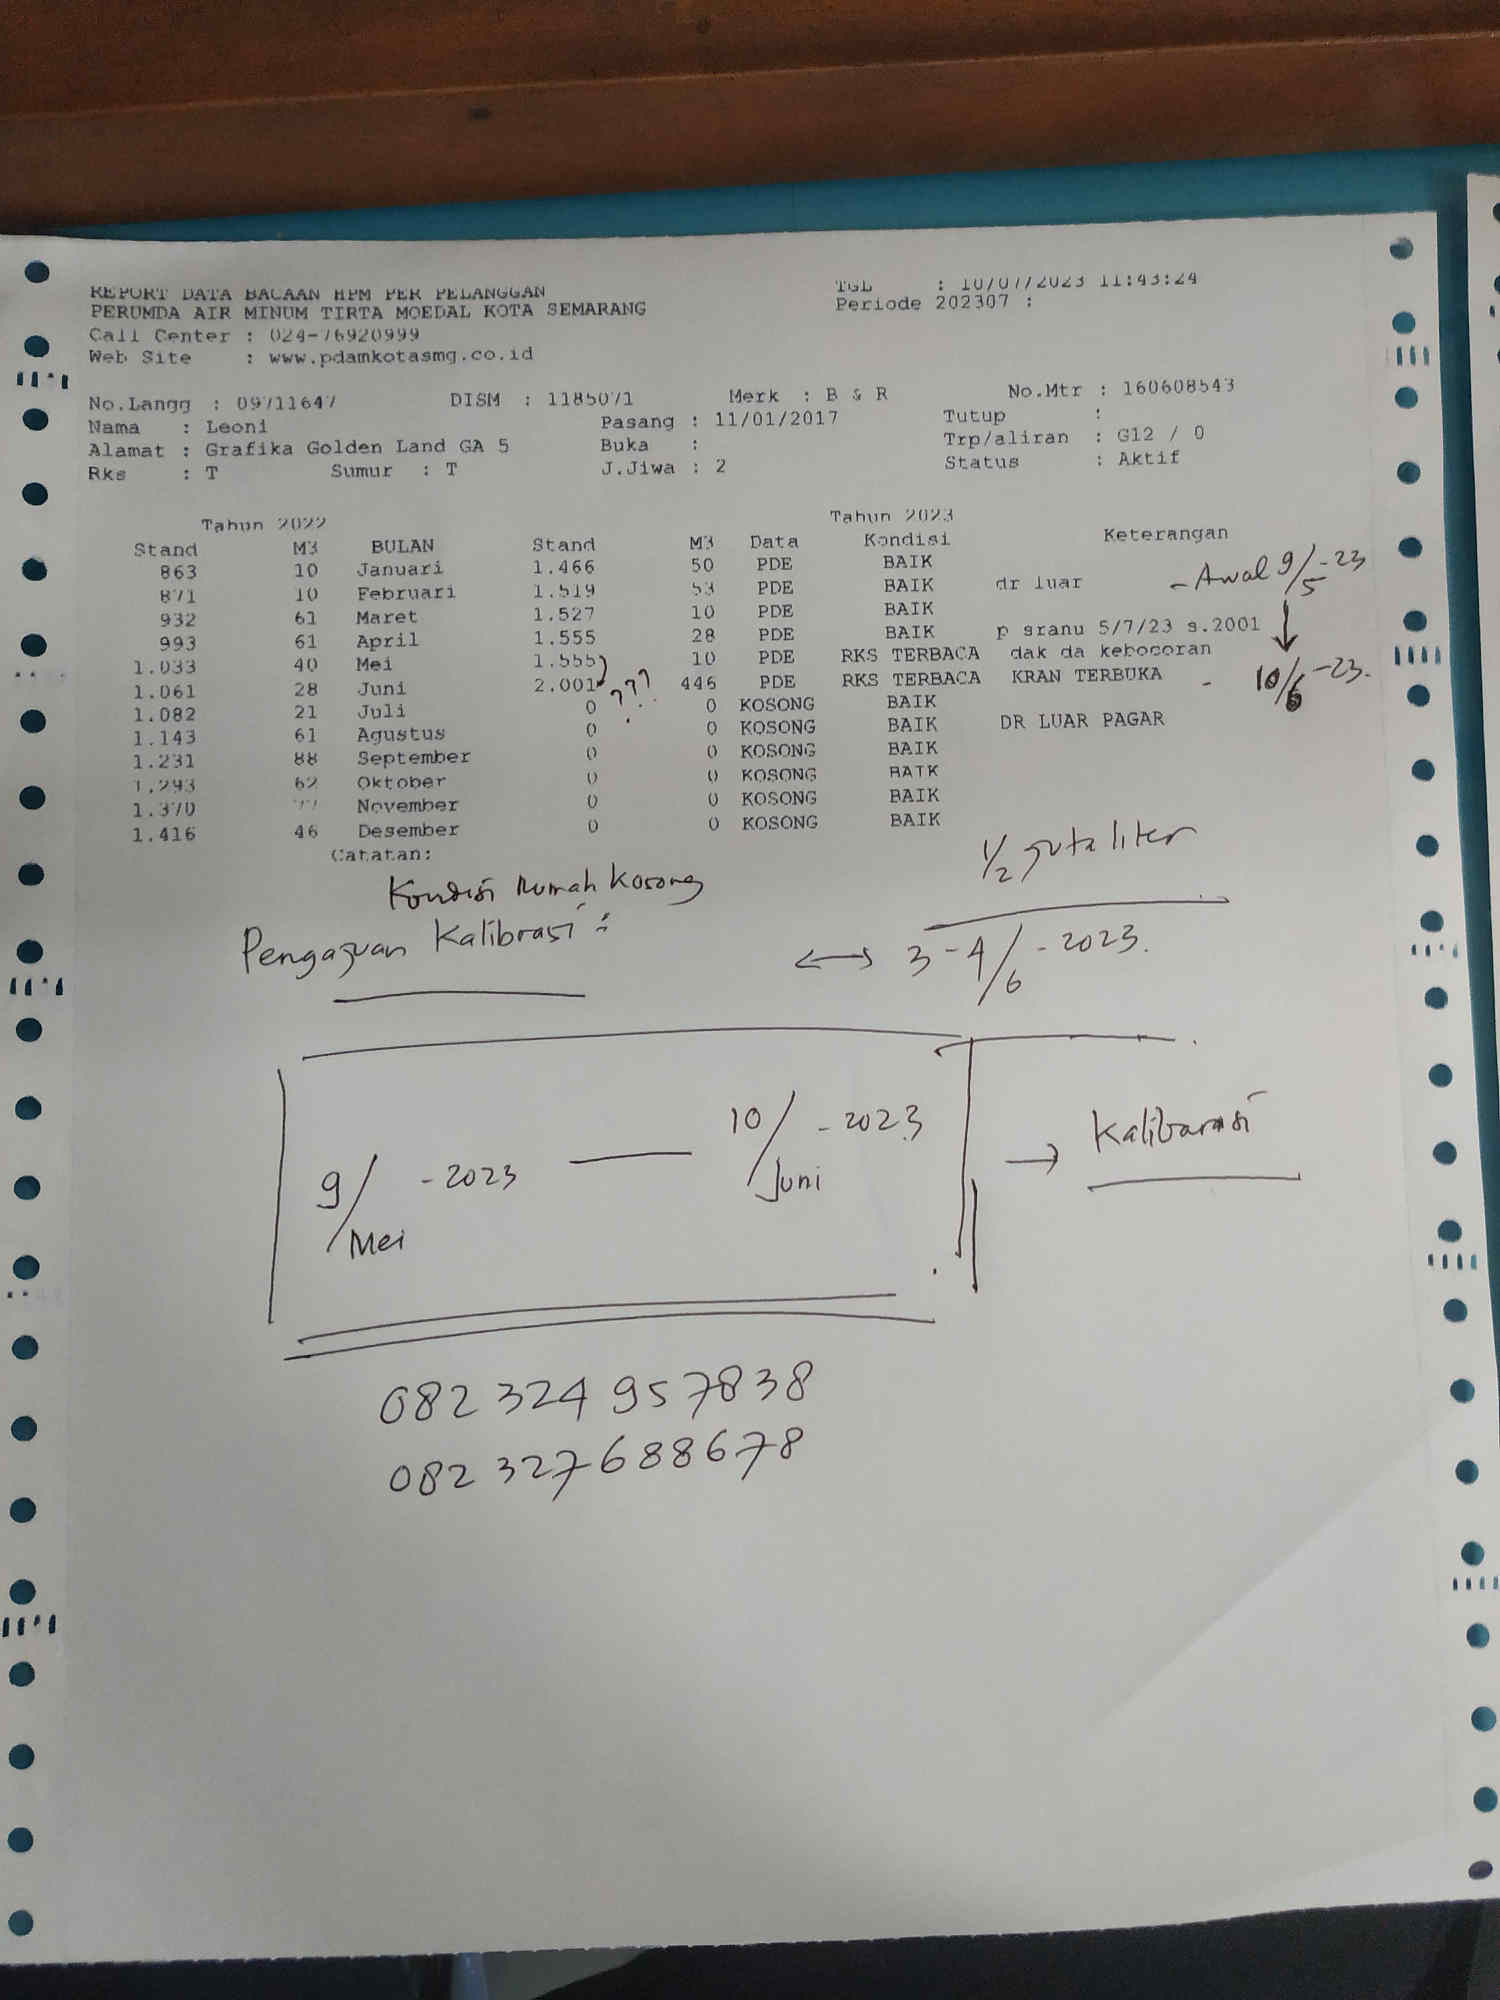 REPORT DATA BACAAN HPM PER PELANGGAN
TGL : 10/07/2023 11:43:24
PERUMDA AIR MINUM TIRTA MOEDAL KOTA SEMARANG
Periode 202307 :
Call Center : 024-76920999
Web Site : www.pdamkotasmg.co.id
No.Langg : 09711647 DISM : 1185071 Merk : B & R No.Mtr : 160608543
Nama : Leoni Pasang : 11/01/2017 Tutup :
Alamat : Grafika Golden Land GA 5 Buka : Trp/aliran : G12 / 0
Rks : T Sumur : T J.Jiwa : 2 Status : Aktif
Tahun 2022 Tahun 2023
Stand M3 BULAN Stand M3 Data Kondisi Keterangan
863 10 Januari 1.466 50 PDE BAIK
- Awal 9/5 -23
871 10 Februari 1.519 53 PDE BAIK dr luar
932 61 Maret 1.527 10 PDE BAIK
993 61 April 1.555 28 PDE BAIK p sranu 5/7/23 s.2001
1.033 40 Mei 1.555 10 PDE RKS TERBACA dak da kebocoran
1.061 28 Juni 2.001 ??? 446 PDE RKS TERBACA KRAN TERBUKA - 10/6 -23.
1.082 21 Juli 0 0 KOSONG BAIK
1.143 61 Agustus 0 0 KOSONG BAIK DR LUAR PAGAR
1.231 88 September 0 0 KOSONG BAIK
1.293 62 Oktober 0 0 KOSONG BAIK
1.370 77 November 0 0 KOSONG BAIK
1.416 46 Desember 0 0 KOSONG BAIK
Catatan:
1/2 juta liter
Kondisi Rumah Kosong
Pengajuan Kalibrasi :
↔ 3-4/6 - 2023.
9/Mei - 2023 — 10/Juni - 2023 → Kalibarasi
082 324 957838
082 327688678